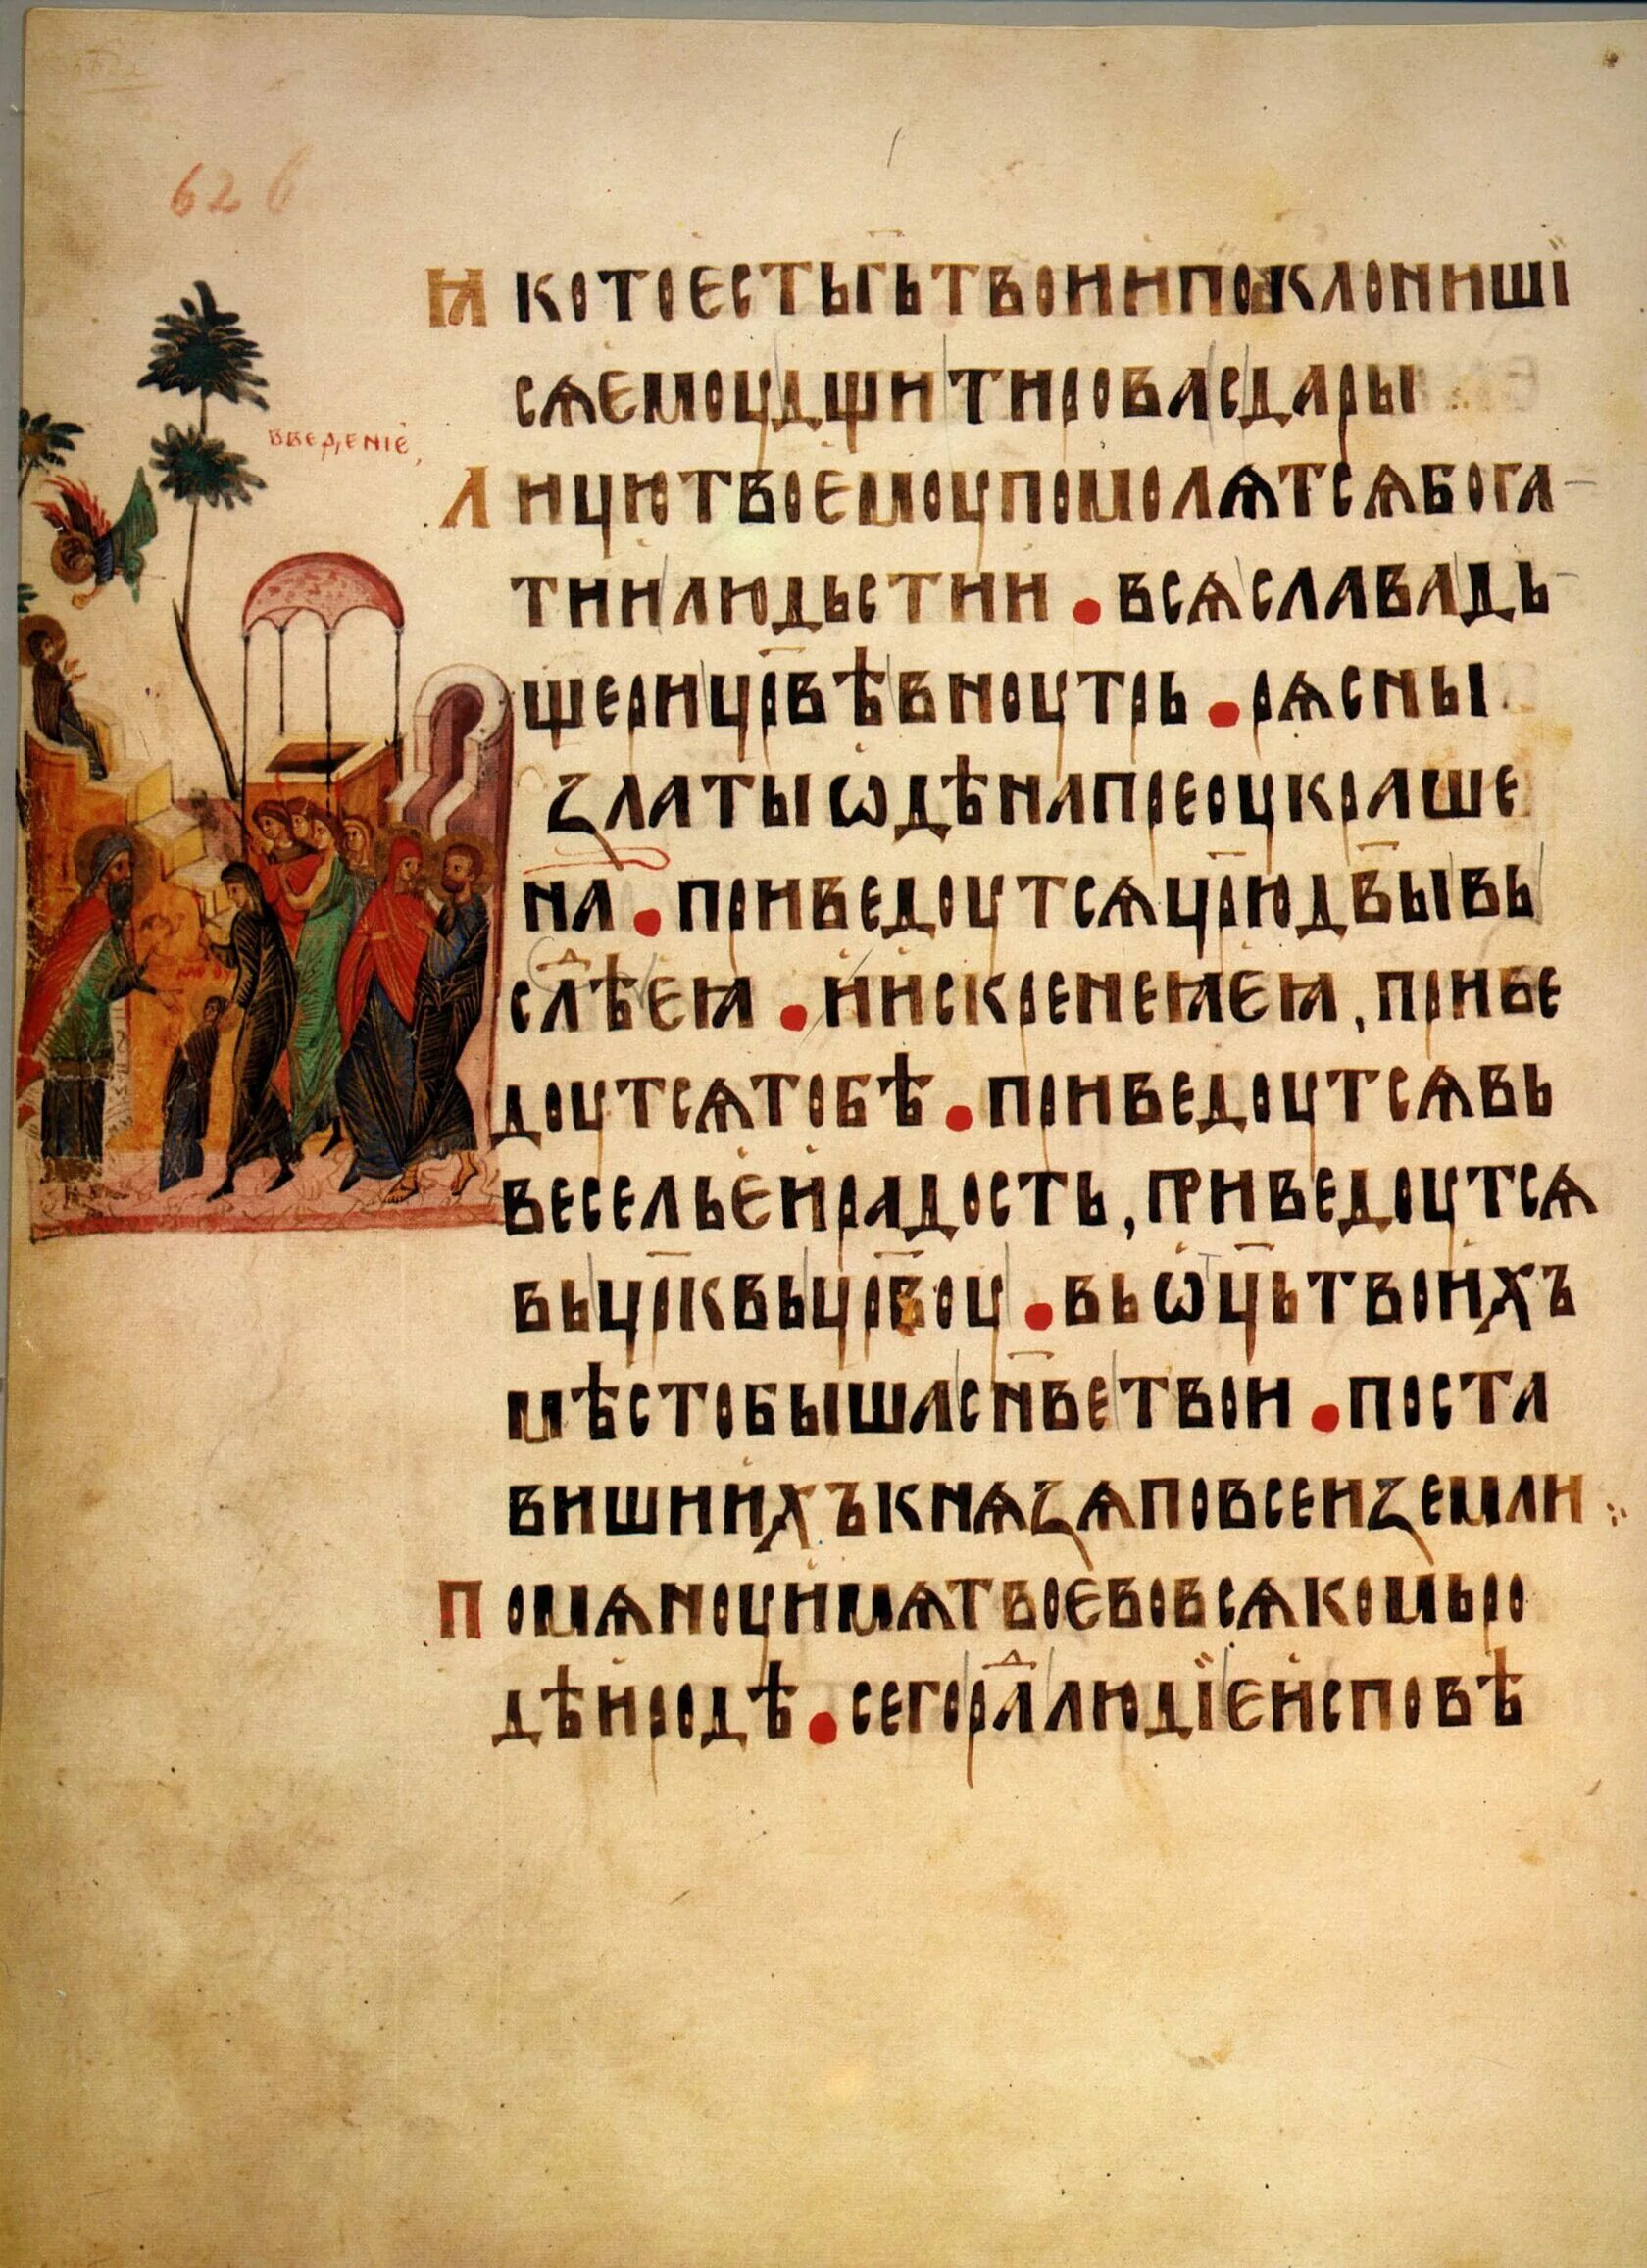 62 б
ꙗкотоестьгь҃твоиипоклонишї
сѧемоудщитировасдары
введенїе,
лицютвоемоупомолѧтсѧбога
тиилюдьстии • всѧславадъ
щерицр҃вѣвноутрь • рѧсны
златыѡдѣнапреоукраше
на • приведоутсѧцр҃юдв҃ывъ
слⷣѣеꙗ • иискренеꙗеꙗ, приве
доутсѧтобѣ • приведоутсѧвь
весельеирадость, приведоутсѧ
вьцр҃квьцр҃воу • вьѡц҃ьтвоихъ
мѣстобышасн҃ветвои • поста
вишиихъкнѧзѧповсеиземли ⁘
помѧноуимѧтвоевовсѧкомьро
дѣиродѣ • сегораⷣлюдїеисповѣ